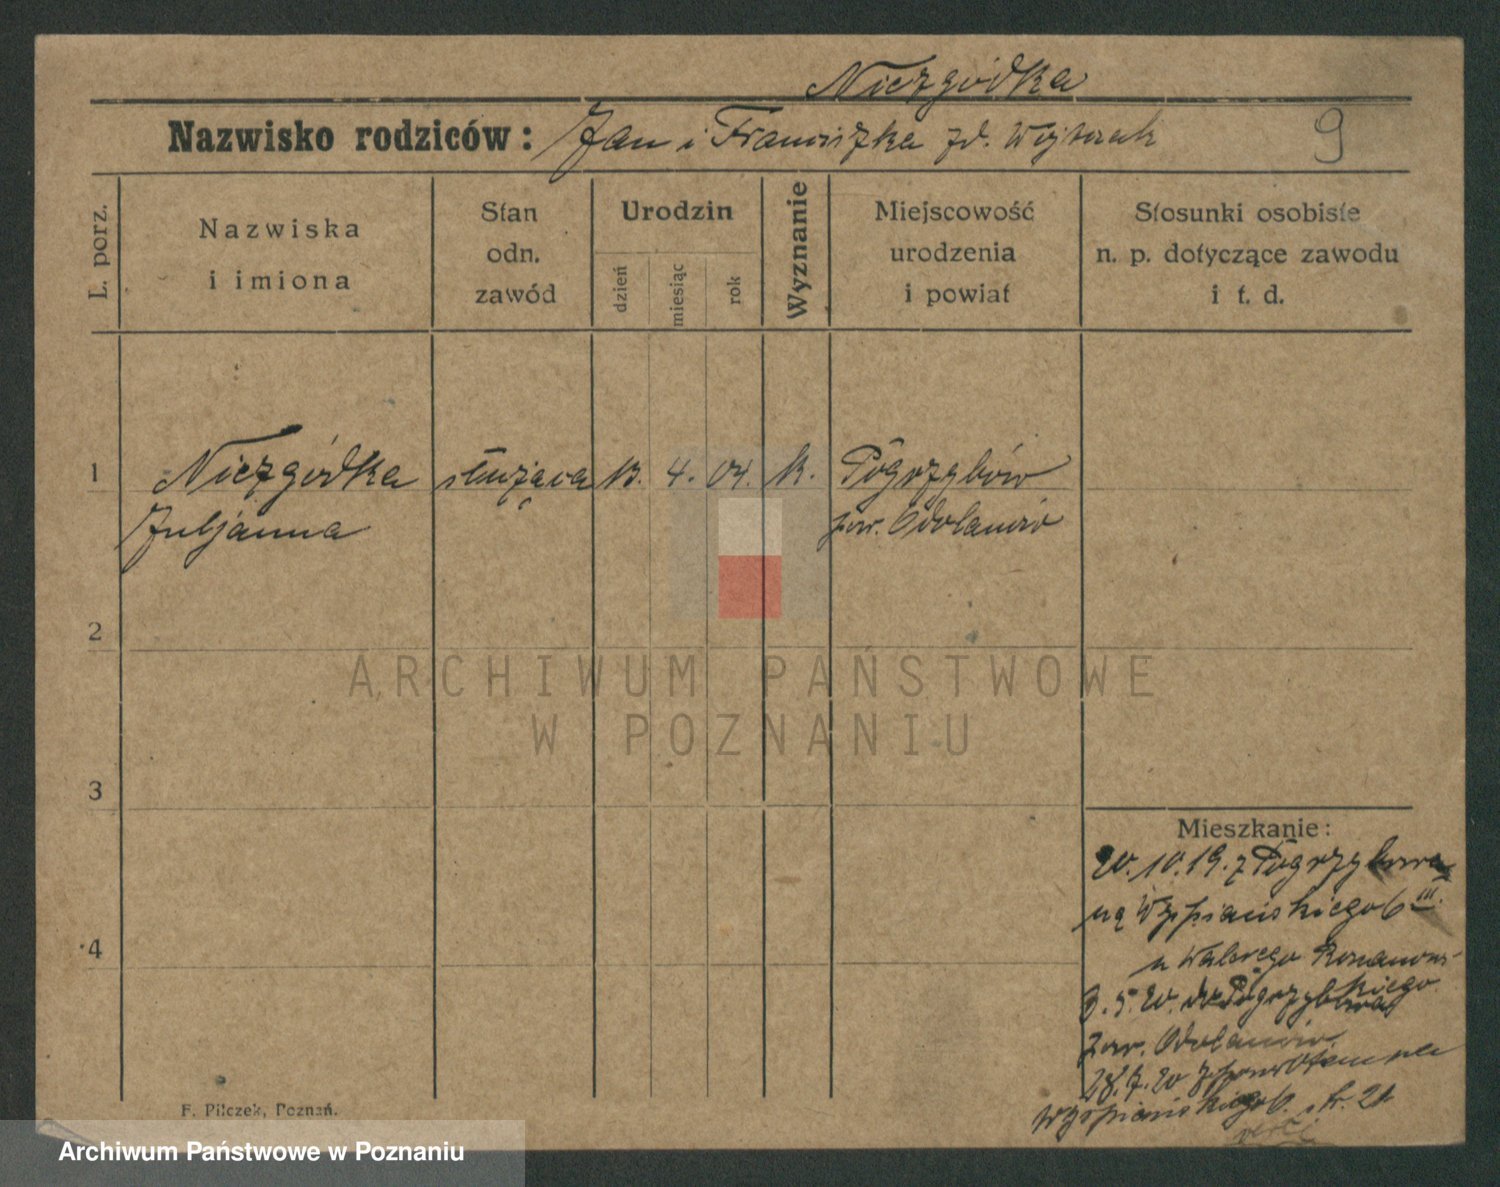 Niezgódka
Nazwisko rodziców: Jan i Franciszka zd. Wojtczak 9
L. porz.
Nazwiska
i imiona
Stan
odn.
zawód
Urodzin
dzień
miesiąc
rok
Wyznanie
Miejscowość
urodzenia
i powiat
Stosunki osobiste
n. p. dotyczące zawodu
i t. d.
1 Niezgódka służąca 13. 4. 04. k. Pogrzybów
Juljanna pow. Odolanów
2
3
4
Mieszkanie:
20.10.19. z Pogrzybowa
na Wyspiańskiego 6 III.
u
3.5.20. do Pogrzybowa
pow. Odolanów
28.7.20 z powrotem na
Wyspiańskiego 6. str. 21
F. Pilczek, Poznań.
ARCHIWUM PAŃSTWOWE
W POZNANIU
Archiwum Państwowe w Poznaniu